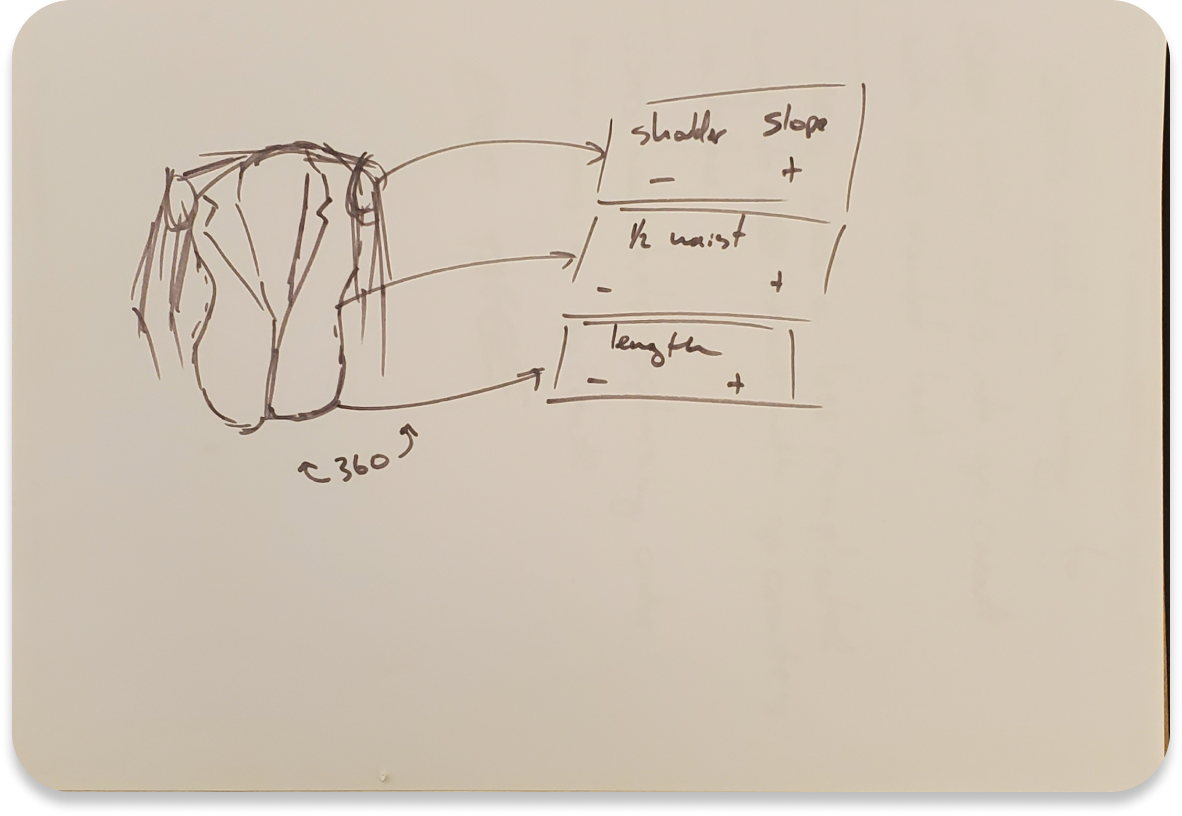 sholder slope
- +
1/2 waist
- +
length
- +
360